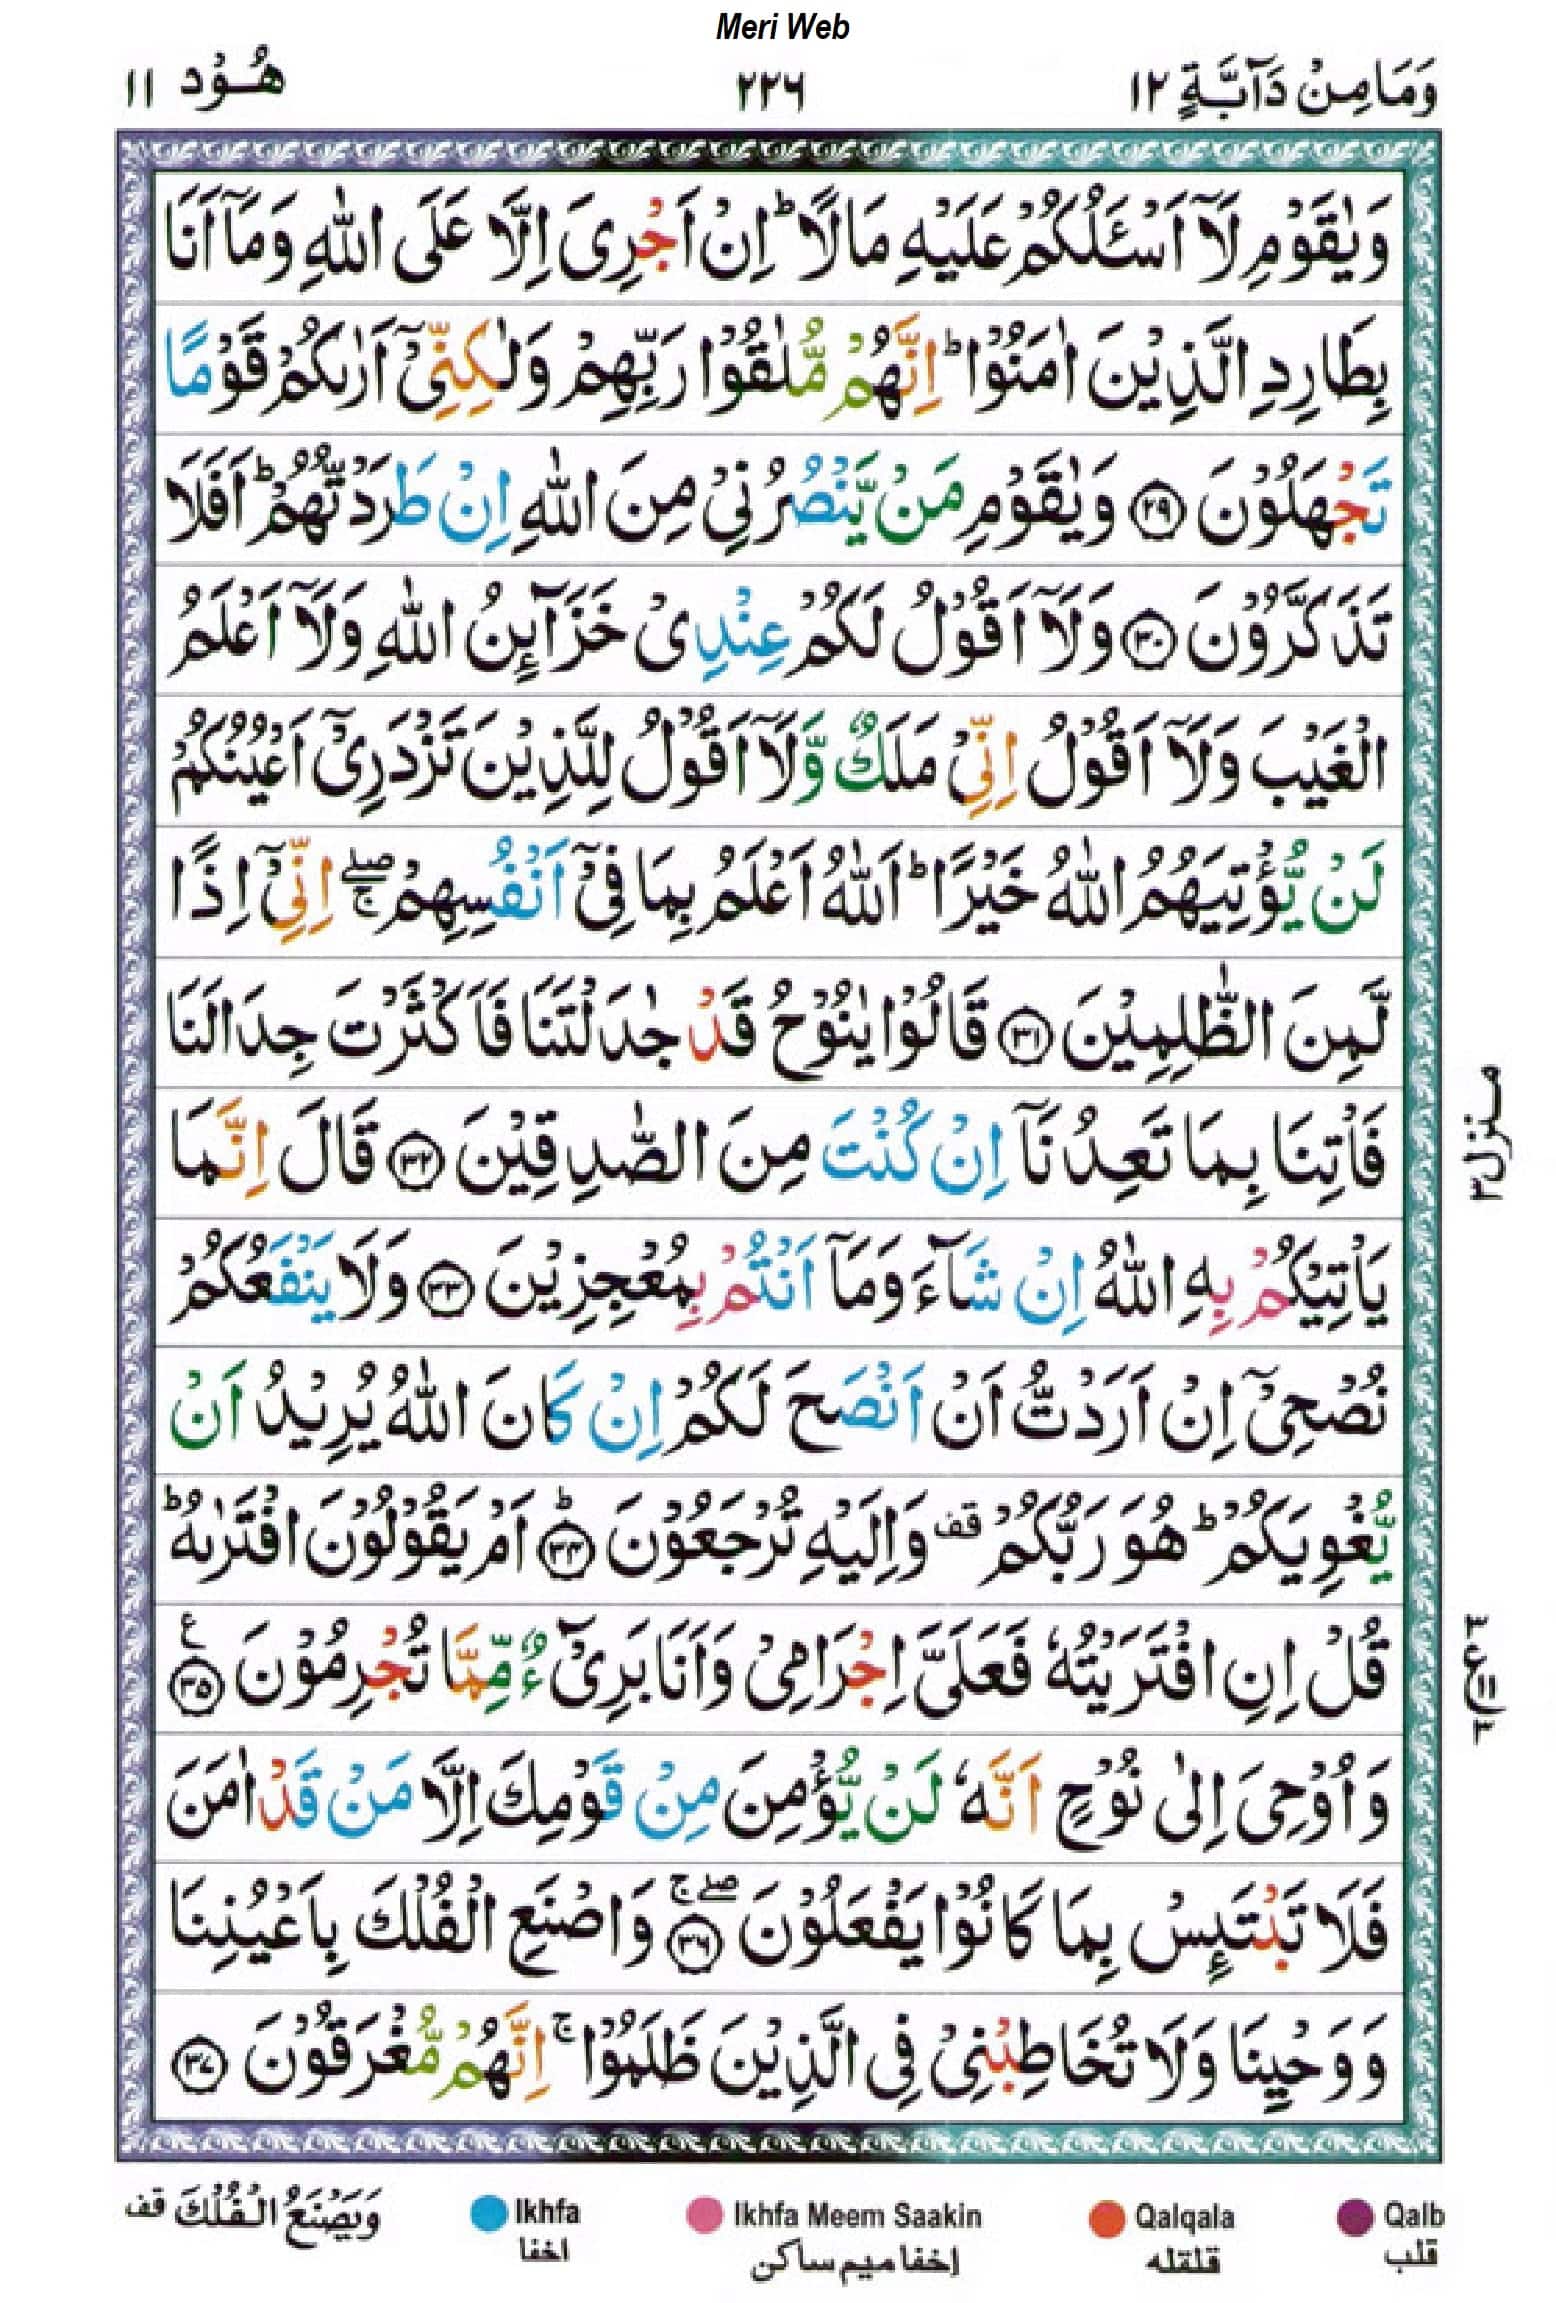 Meri Web
وَمَا مِنْ دَآبَّةٍ ١٢
٢٢٦
هُوْد ١١
وَيٰقَوْمِ لَآ اَسْـَٔلُكُمْ عَلَيْهِ مَالًا ؕ اِنْ اَجْرِىَ اِلَّا عَلَى اللّٰهِ وَمَآ اَنَا
بِطَارِدِ الَّذِيْنَ اٰمَنُوْا ؕ اِنَّهُمْ مُّلٰقُوْا رَبِّهِمْ وَلٰكِنِّىْۤ اَرٰىكُمْ قَوْمًا
تَجْهَلُوْنَ ﴿۲۹﴾ وَيٰقَوْمِ مَنْ يَّنْصُرُنِىْ مِنَ اللّٰهِ اِنْ طَرَدْتُّهُمْ ؕ اَفَلَا
تَذَكَّرُوْنَ ﴿۳۰﴾ وَلَآ اَقُوْلُ لَكُمْ عِنْدِىْ خَزَآئِنُ اللّٰهِ وَلَآ اَعْلَمُ
الْغَيْبَ وَلَآ اَقُوْلُ اِنِّىْ مَلَكٌ وَّلَآ اَقُوْلُ لِلَّذِيْنَ تَزْدَرِىْۤ اَعْيُنُكُمْ
لَنْ يُّؤْتِيَهُمُ اللّٰهُ خَيْرًا ؕ اَللّٰهُ اَعْلَمُ بِمَا فِىْۤ اَنْفُسِهِمْ ۖۚ اِنِّىْۤ اِذًا
لَّمِنَ الظّٰلِمِيْنَ ﴿۳۱﴾ قَالُوْا يٰنُوْحُ قَدْ جٰدَلْتَنَا فَاَكْثَرْتَ جِدَالَنَا
فَاْتِنَا بِمَا تَعِدُنَآ اِنْ كُنْتَ مِنَ الصّٰدِقِيْنَ ﴿۳۲﴾ قَالَ اِنَّمَا
يَاْتِيْكُمْ بِهِ اللّٰهُ اِنْ شَآءَ وَمَآ اَنْتُمْ بِمُعْجِزِيْنَ ﴿۳۳﴾ وَلَا يَنْفَعُكُمْ
نُصْحِىْۤ اِنْ اَرَدْتُّ اَنْ اَنْصَحَ لَكُمْ اِنْ كَانَ اللّٰهُ يُرِيْدُ اَنْ
يُّغْوِيَكُمْ ؕ هُوَ رَبُّكُمْ قف وَاِلَيْهِ تُرْجَعُوْنَ ؕ﴿۳۴﴾ اَمْ يَقُوْلُوْنَ افْتَرٰىهُ ؕ
قُلْ اِنِ افْتَرَيْتُهٗ فَعَلَىَّ اِجْرَامِىْ وَاَنَا بَرِىْٓءٌ مِّمَّا تُجْرِمُوْنَ ﴿۳۵﴾ ع
وَاُوْحِىَ اِلٰى نُوْحٍ اَنَّهٗ لَنْ يُّؤْمِنَ مِنْ قَوْمِكَ اِلَّا مَنْ قَدْ اٰمَنَ
فَلَا تَبْتَئِسْ بِمَا كَانُوْا يَفْعَلُوْنَ ۖۚ﴿۳۶﴾ وَاصْنَعِ الْفُلْكَ بِاَعْيُنِنَا
وَوَحْيِنَا وَلَا تُخَاطِبْنِىْ فِى الَّذِيْنَ ظَلَمُوْا ۚ اِنَّهُمْ مُّغْرَقُوْنَ ﴿۳۷﴾
منزل ۳
۳ ع ۳
Qalb
قلب
Qalqala
قلقله
Ikhfa Meem Saakin
إخفا ميم ساكن
Ikhfa
اخفا
وَيَصْنَعُ الْفُلْكَ قف